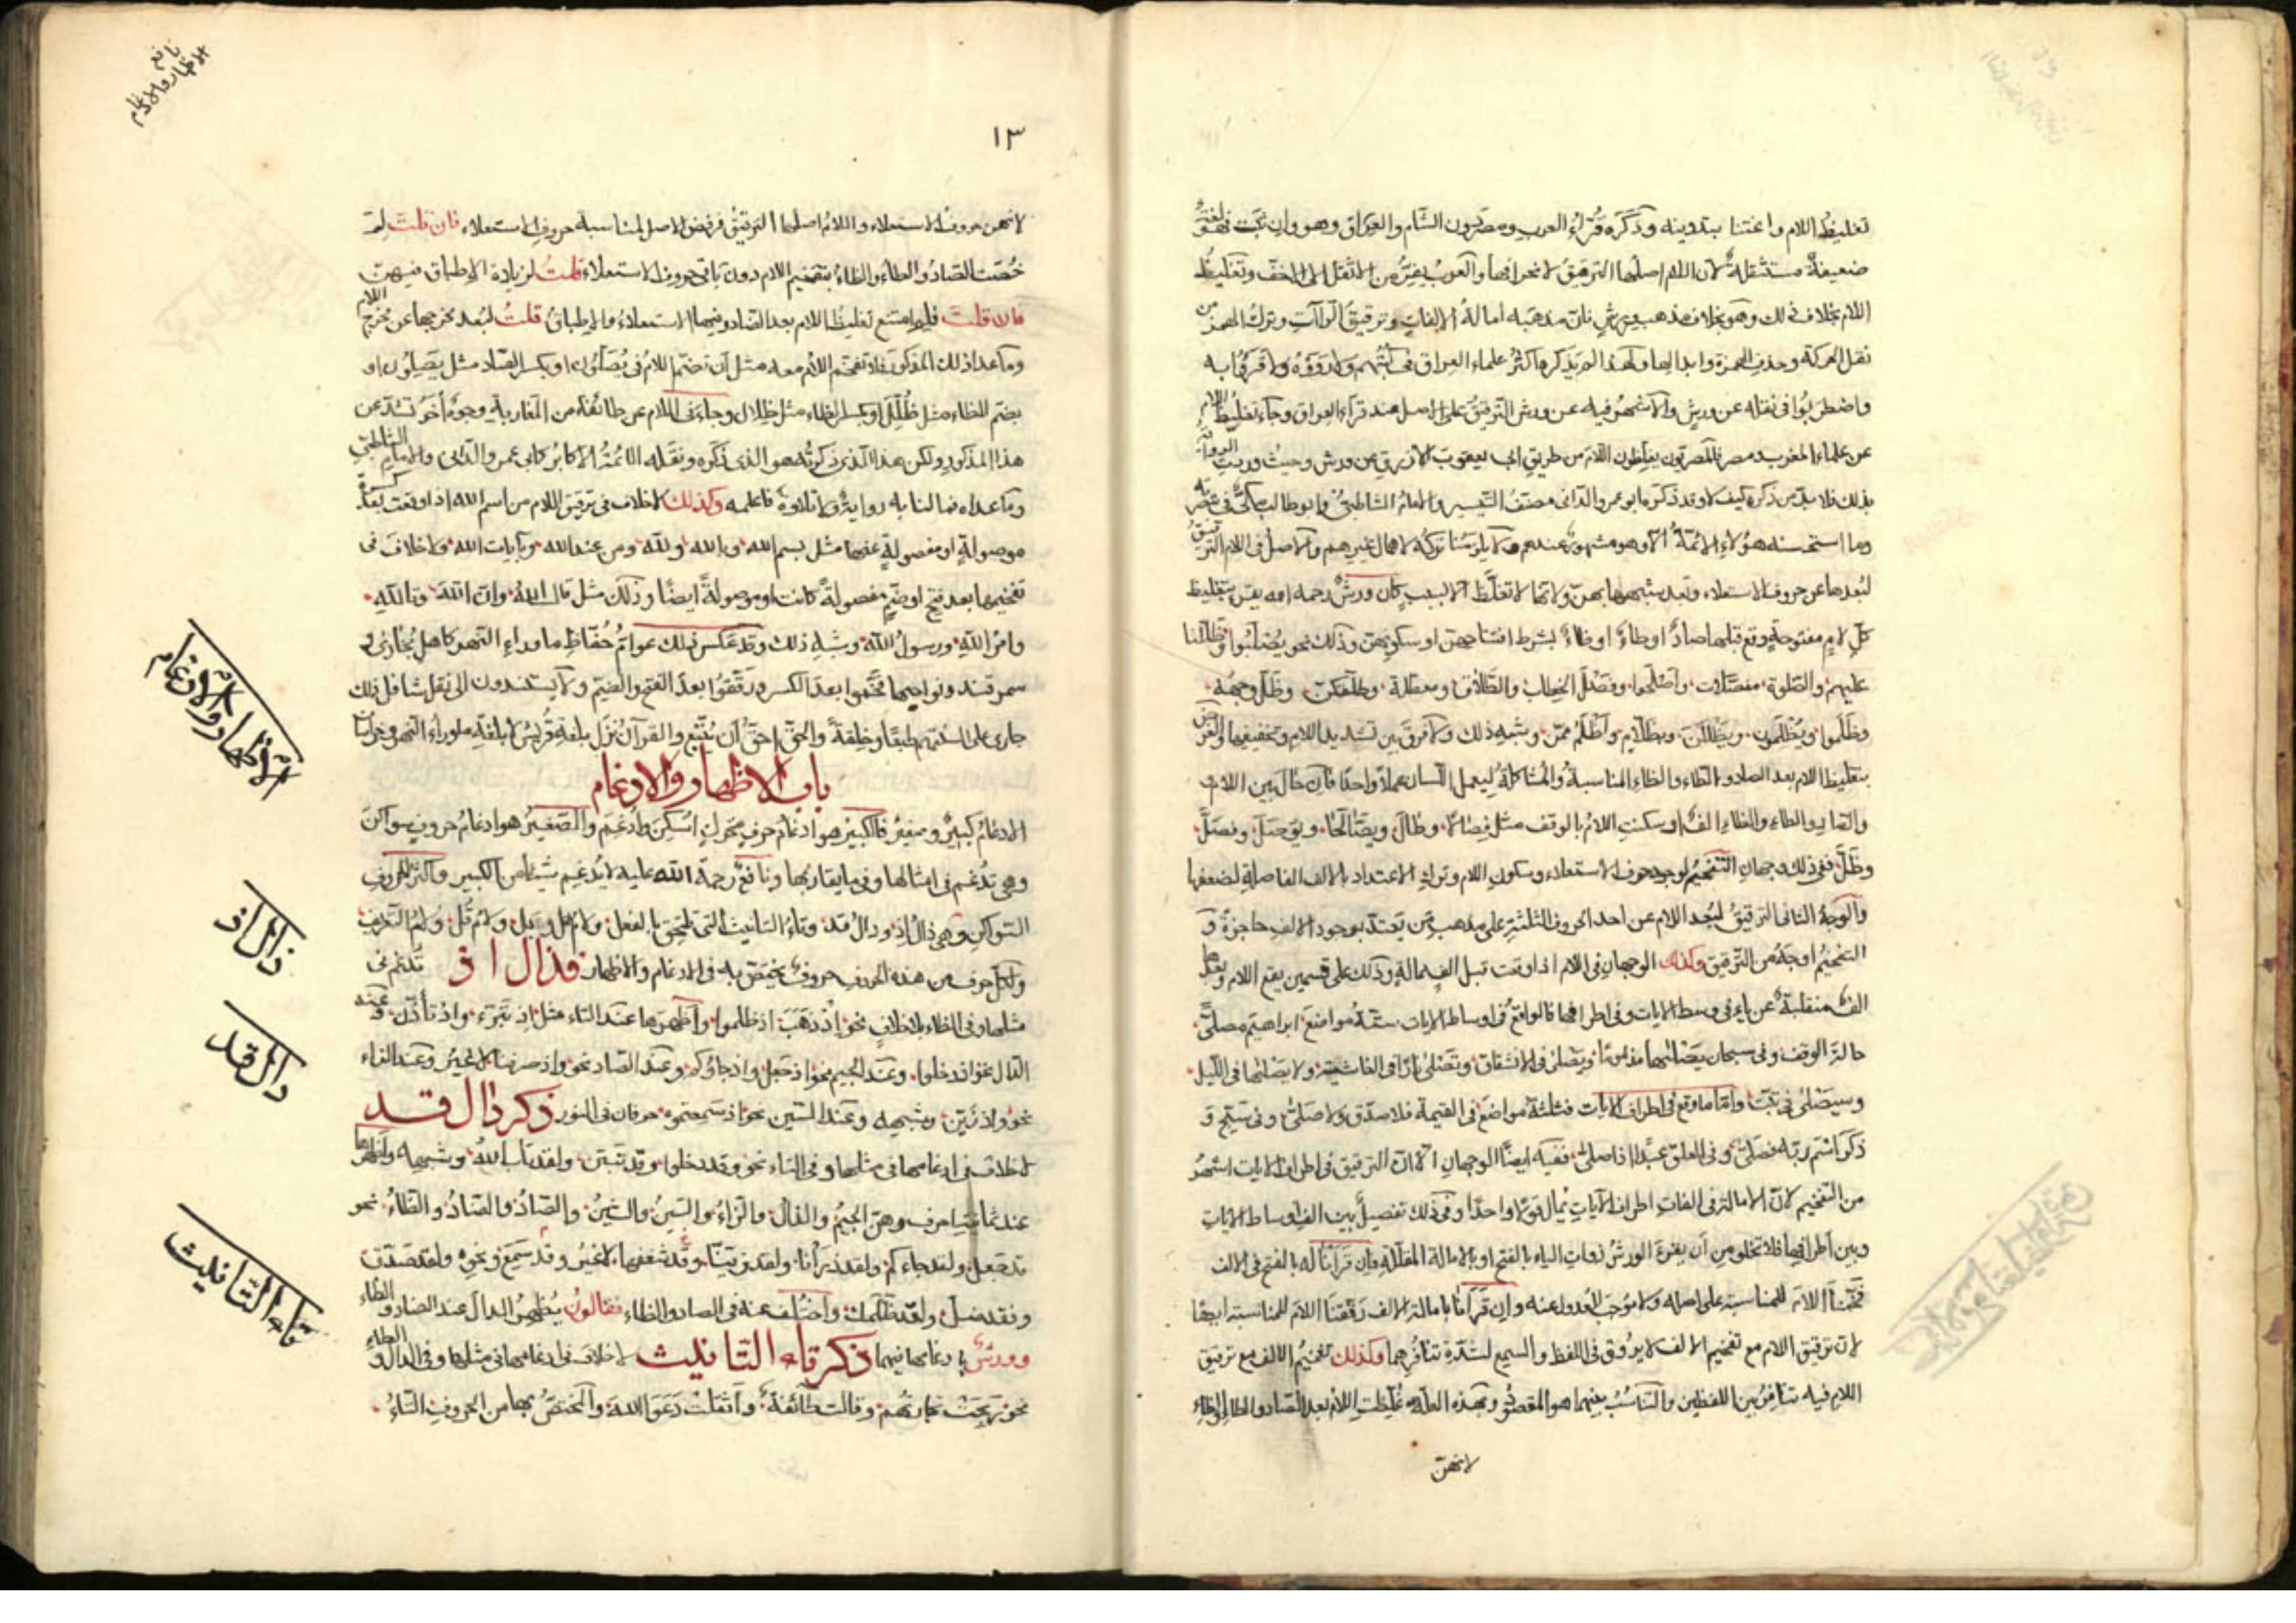 تغليظ اللام واعتنا بتدوينه وذكره قراء العرب ومصريون الشام والعراق وهو وان تحت فهو لغة
ضعيفة مستثقلة لان اللام اصلها الترقيق لانحرافها والعرب يفر من الاثقل الى الاخف وتغليظ
اللام بخلاف ذلك وهو بخلاف مذهب ورش فان مذهبه امالة الالفات وترقيق الراآت وترك الهمز من
نقل الحركة وحذف الهمزة وابدالها ولهذا لم يذكرها كثر علماء العراق في كتبهم ولا رووه ولا قرؤا به
واضطربوا في نقله عن ورش والاشهر فيه عن ورش الترقيق على الاصل عند قراء العراق وجاء تغليظ اللام
عن علماء المغرب مصر فالمصريون يغلظون اللام من طريق ابي يعقوب الازرق عن ورش وحيث وردت الرواية
بذلك فلا بد من ذكره كيف لا وقد ذكره ابو عمرو الداني مصنف التيسير والامام الشاطبي وابو طالب مكي في تبصرته
وما استحسنه هؤلاء الائمة الا وهو مشهور عندهم ولا يلزمنا تركه لاهمال غيرهم والاصل في اللام الترقيق
لبعدها عن حروف الاستعلاء وبعد شبهها بهن ولانها لا تغلظ الا لسبب كان ورش رحمه الله يقرء بتغليظ
كل لام مفتوحة وقع قبلها صاد او طاء او ظاء بشرط افتتاحهن او سكونهن وذلك نحو يصلبوا وظللنا
عليهم والصلوة مفصلات واصلحوا وفصل الخطاب والطلاق ومعطلة وطلقكن وظل وجهه
وظلموا ويظلمون ويظللن وبظلام واظلم ممن وشبه ذلك ولا فرق بين تشديد اللام وتخفيفها والغرض
بتغليظ اللام بعد الصاد والطاء والظاء المناسبة والمشاكلة ليعمل اللسان عملا واحدا فان حال بين اللام
والصاد والطاء والظاء الف او سكنت اللام بالوقف مثل فصالا وطال ويصالحا ويوصل وفصل
وظل ففي ذلك وجهان التفخيم لوجود حرف الاستعلاء وسكون اللام وترك الاعتداد بالالف الفاصلة لضعفها
والوجه الثاني الترقيق لبعد اللام عن احد الحروف الثلثة على مذهب من يعتد بوجود الالف حاجزة و
التفخيم اوجه من الترقيق وكذلك الوجهان في اللام اذا وقعت قبل الف ممالة وذلك على قسمين يقع اللام وبعدها
الف منقلبة عن ياء في وسط الايات وفي اطرافها فالواقع في اوساط الايات ستة مواضع ابراهيم مصلى
حالة الوقف وفي سبحان يصلاها مذموما ويصلى في الانشقاق وتصلى نارا في الغاشية ولا يصلاها في الليل
وسيصلى في تبت واما ما وقع في اطراف الايات فثلثة مواضع في القيمة فلا صدق ولا صلى وفي سبح و
ذكر اسم ربه فصلى وفي العلق عبدا اذا صلى ففيه ايضا الوجهان الا ان الترقيق في اطراف الايات اشهر
من التفخيم لان الامالة في الفات اطراف الآيات يمال قولا واحدا وفي ذلك تفصيل بين الف اوساط الايات
وبين اطرافها فلا تخلو من ان يقرء لورش ذوات الياء بالفتح او بالامالة المقللة فان قرأنا له بالفتح في الالف
فخمنا اللام للمناسبة على اصله ولا موجب للعدول عنه وان قرأنا بامالة الالف رققنا اللام للمناسبة ايضا
لان ترقيق اللام مع تفخيم الالف لا يروق في اللفظ والسمع لشدة تنافرهما وكذلك تفخيم الالف مع ترقيق
اللام فيه تنافر بين اللفظين والتناسب بينهما هو المقصود وبهذه العلة غلظت اللام بعد الصاد والطاء والظاء
لانهن
نافع
الاظهار والادغام
١٣
لانهن حروف الاستعلاء واللام اصلها الترقيق فرفض الاصل لمناسبة حروف الاستعلاء فان قلت لم
خصت الصاد والطاء والظاء بتفخيم اللام دون باقي حروف الاستعلاء قلت لزيادة الاطباق فيهن
فان قلت فلم امتنع تغليظ اللام بعد الضاد وفيها الاستعلاء والاطباق قلت لبعد مخرجها عن مخرج اللام
وما عدا ذلك المذكور فلا تفخم اللام معه مثل ان تضم اللام في يصلون او بكسر الصاد مثل يصلون او
بضم الظاء مثل ظلل او بكسر الظاء مثل ظلال وجاء في اللام عن طائفة من المغاربة وجوه اخر تشذ عن
هذا المذكور ولكن هذا الذي ذكرته هو الذي ذكره ونقله الائمة الاكابر كابي عمرو الداني والامام الشاطبي
وما عداه فما لنا به رواية ولا تلاوة فاعلمه وكذلك لا خلاف في ترقيق اللام من اسم الله اذا وقعت بعد كسرة
موصولة او مفصولة عنها مثل بسم الله وبالله ولله ومن عند الله وبآيات الله ولا خلاف في
تفخيمها بعد فتح او ضم مفصولة كانت او موصولة ايضا وذلك مثل قال الله وان الله وتالله
وامر الله ورسول الله وشبه ذلك وقد عكس ذلك عوام حفاظ ما وراء النهر كاهل بخارى و
سمرقند ونواحيها فخموا بعد الكسر ورققوا بعد الفتح والضم ولا يستندون الى نقل شاف بل ذلك
جار على السنتهم طبقا وخلقة والحق احق ان يتبع والقرآن نزل بلغة قريش لا بلغة ماوراء النهر وخراسان
باب الاظهار والادغام
الادغام كبير وصغير فالكبير هو ادغام حرف متحرك اسكن وادغم والصغير هو ادغام حروف سواكن
وهي تدغم في امثالها وفي ما يقاربها ونافع رحمة الله عليه لا يدغم شيئا من الكبير واكثر الحروف
السواكن وهي ذال اذ ودال قد وتاء التانيث التي تلحق بالفعل ولام هل وبل ولام قل ولام التعريف
ولكل حرف من هذه الحروف حروف يختص به في الادغام والاظهار فذال اذ تدغم في
مثلها وفي الظاء بلا خلاف نحو اذ ذهب اذ ظلموا واظهرها عند التاء مثل اذ تبرء واذ تأذن وعند
الدال نحو اذ دخلوا وعند الجيم نحو اذ جعل واذ جاؤكم وعند الصاد نحو واذ صرفنا لا غير وعند الزاء
نحو واذ زين وشبهه وعند السين نحو اذ سمعتموه حرفان في النور ذكر دال قد
لا خلاف في ادغامها في مثلها وفي التاء نحو وقد دخلوا وقد تبين ولقد تاب الله وشبهه واظهرها
عند ثمانية احرف وهي الجيم والذال والزاء والسين والشين والصاد والضاد والظاء نحو
قد جعل ولقد جاءكم ولقد ذرأنا ولقد زينا وقد شغفها لا غير وقد سمع ونحوه ولقد صدق
وفقد ضل ولقد ظلمك واختلف عنه في الضاد والظاء فقالون يظهر الدال عند الضاد والظاء
وورش بادغامها فيهما ذكر تاء التانيث لا خلاف في ادغامها في مثلها وفي الدال والطاء
نحو ربحت تجارتهم وقالت طائفة واثقلت دعوا الله والمختص بها من الحروف الثاء
الاظهار والادغام
ذال اذ
دال قد
تاء التانيث